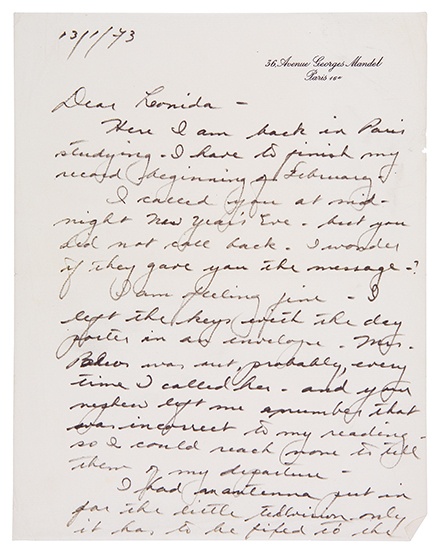 13/1/73
36, Avenue Georges Mandel
Paris 16e
Dear Leonida -
Here I am back in Paris
studying - I have to finish my
record beginning of February -
I called you at mid-
night New Year's Eve - but you
did not call back - I wonder
if they gave you the message - ?
I am feeling fine - I
left the keys with the day
porter in an envelope - Mrs.
was out probably, every
time I called her - and your
nephew left me a number that
was incorrect to my reading -
so I could reach none to tell
them of my departure -
I had an antenna put in
for the little television - only
it has to be fifed to the